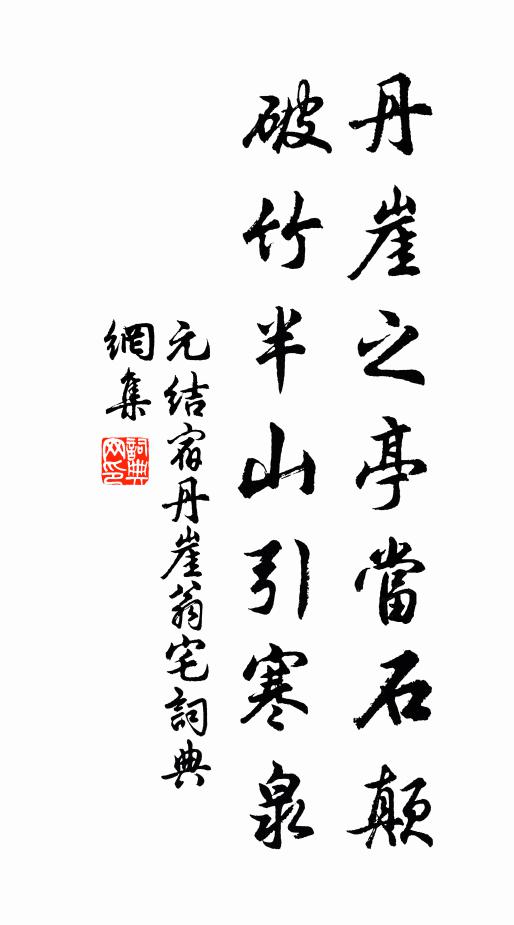 丹崖之亭當石顛
破竹半山引寒泉
元結宿丹崖翁宅詞典
網集
詞典網印